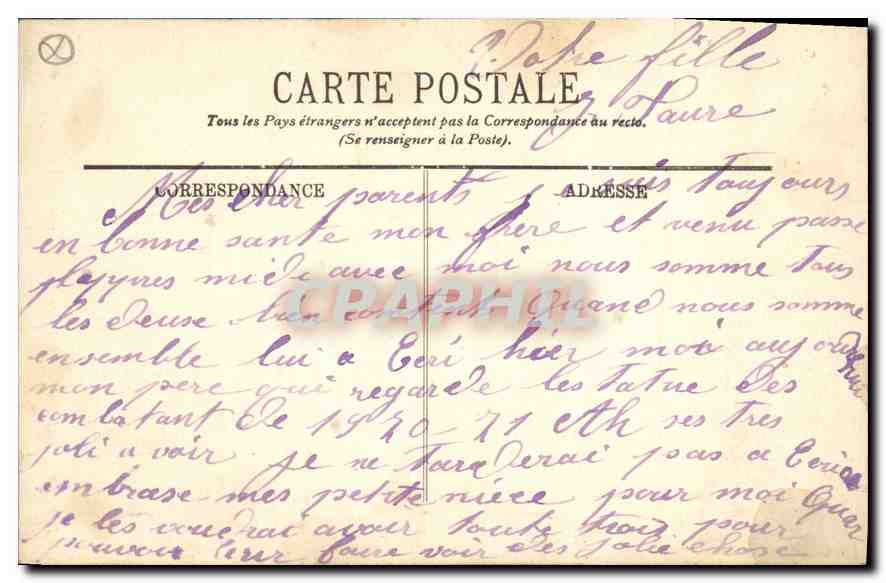 Votre fille
J Faure
CARTE POSTALE
Tous les Pays étrangers n'acceptent pas la Correspondance au recto.
(Se renseigner à la Poste).
CORRESPONDANCE
ADRESSE
Mes cher parents je suis toujours
en bonne sante mon frere et venu passe
plapres midi avec moi nous somme tous
les deuse bien content quand nous somme
ensemble lui a Ecri hier moi aujourdhui
mon pere qui regarde les tatue des
combatant de 1870-71 Ah ses tres
joli a voir je ne tarderai pas a Ecrire
embrase mes petite niéce pour moi quar
je les voudrai avoir toute trois pour
pouvoir leur faire voir des jolie chose
CPAPHIL